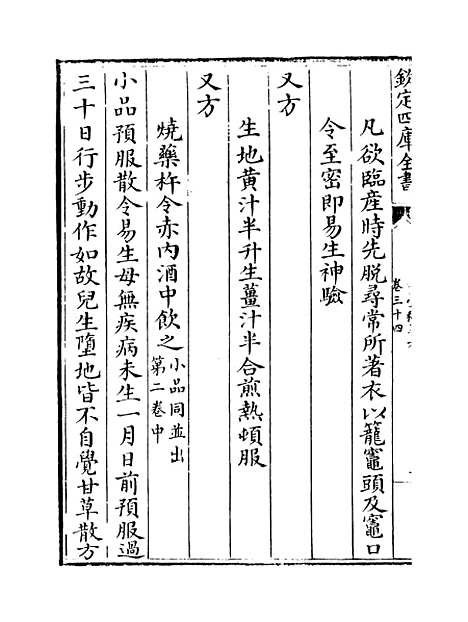 欽定四庫全書
卷三十四
凡欲臨産時先脫尋常所著衣以籠竈頭及竈口
令至密即易生神驗
又方
生地黄汁半升生薑汁半合煎熱頓服
又方
燒藥杵令赤内酒中飲之小品同並出
第二卷中
小品預服散令易生母無疾病未生一月日前預服過
三十日行步動作如故兒生墮地皆不自覺甘草散方